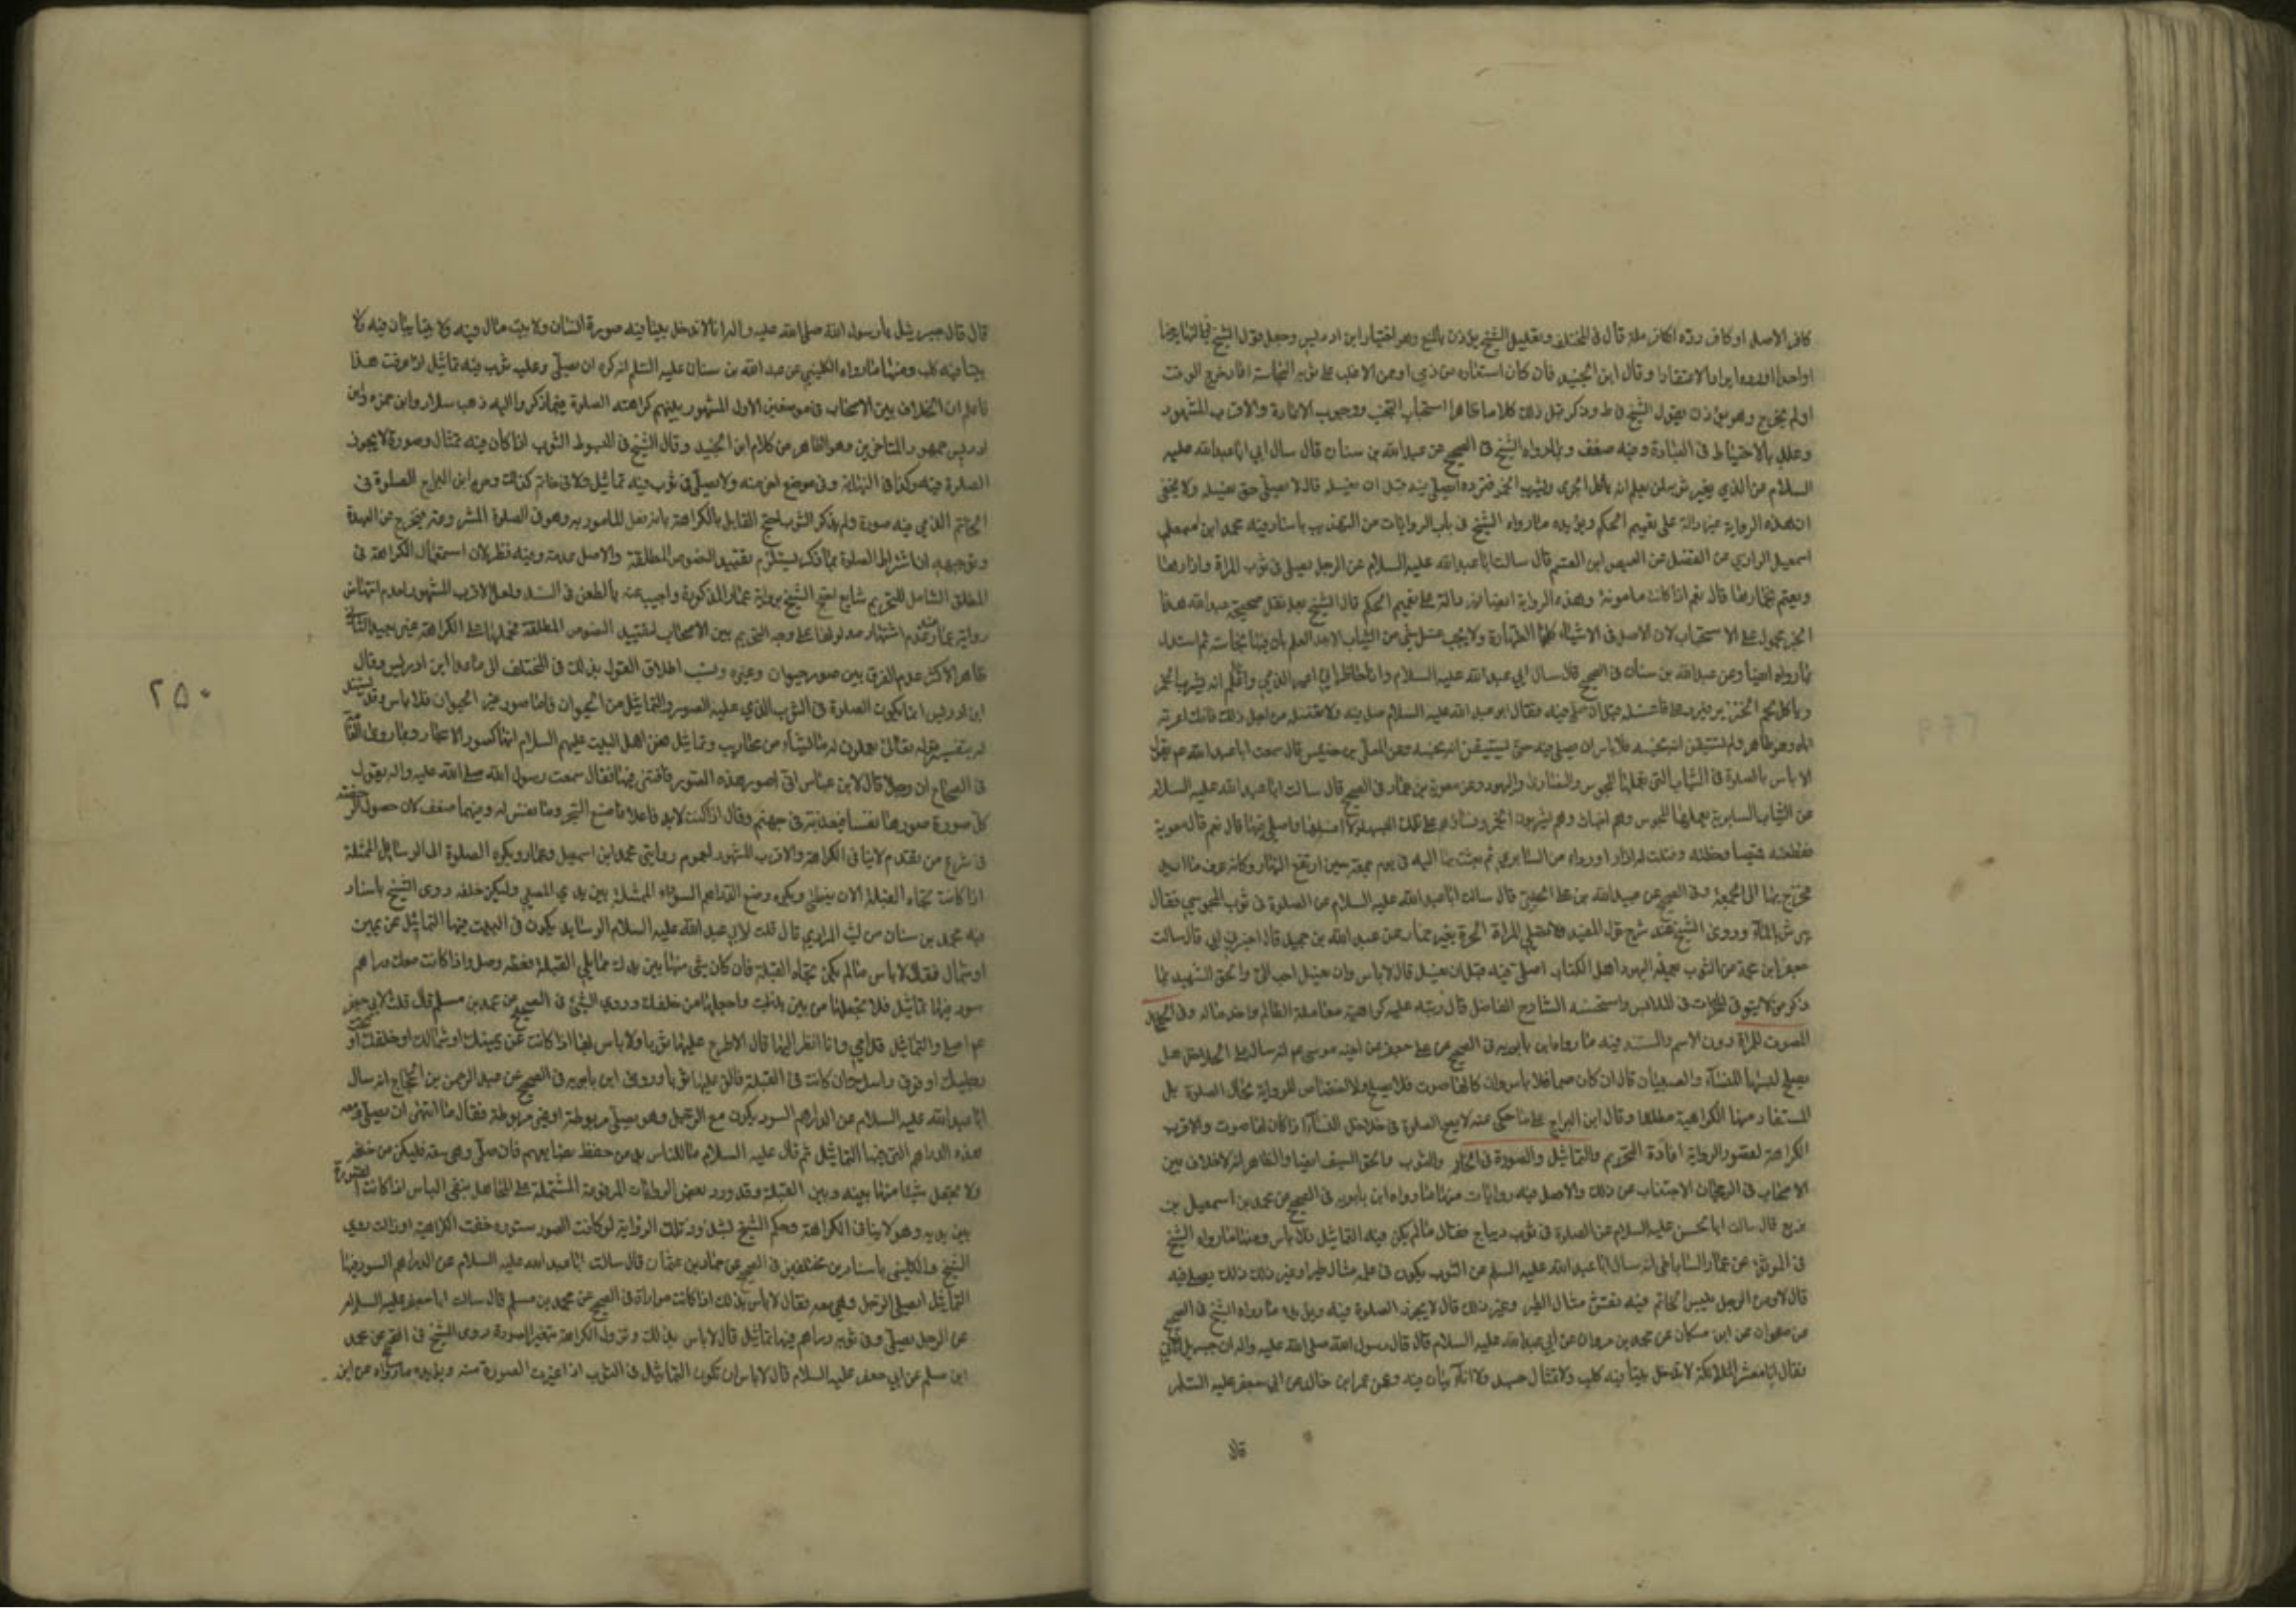 كافر الاصل او كافر ردة اكافر ملة قال في المختلف وتعليل الشيخ يؤذن بالمنع وهو اختيار ابن ادريس وحمل قول الشيخ في النهاية
وقال ابن الجنيد فان كان استعاره من ذمي او ممن الاغلب على ثوبه النجاسة اعاد خرج الوقت
اولم يخرج وهو يؤذن بقول الشيخ في ط وذكر قبل ذلك كلاما ظاهرا استحباب التجنب ووجوب الاعادة والاقرب المشهور
وعلل بالاحتياط في العبادة وفيه ضعف وبما رواه الشيخ في الصحيح عن عبد الله بن سنان قال سال ابي ابا عبد الله عليه
السلام عن الذي يعير ثوبه لمن يعلم انه ياكل الجري ويشرب الخمر فيرده ايصلي فيه قبل ان يغسله قال لا يصلي حتى يغسله ولا يخفى
ان هذه الرواية غير دالة على تعميم الحكم ويؤيده ما رواه الشيخ في باب الروايات من التهذيب باسناد فيه محمد ابن
اسمعيل الرازي عن الفضل عن العيص ابن القسم قال سالت ابا عبد الله عليه السلام عن الرجل يصلي في ثوب المراة وازارها
ويعتم بخمارها قال نعم اذا كانت مامونة وهذه الرواية ايضا غير دالة على تعميم الحكم قال الشيخ بعد نقل صحيحة عبد الله هذا
الخبر محمول على الاستحباب لان الاصل في الاشياء كلها الطهارة ولا يجب غسل شئ من الثياب الا بعد العلم بان فيها نجاسة ثم استدل
بما رواه ايضا وعن عبد الله بن سنان في الصحيح قال سال ابي عبد الله عليه السلام وانا حاضر اني اعير الذمي واعلم انه يشرب الخمر
وياكل لحم الخنزير فيرده على فاغسله قبل ان اصلي فيه فقال ابو عبد الله عليه السلام صل فيه ولا تغسله من اجل ذلك فانك اعرته
اياه وهو طاهر ولم تستيقن انه نجسه فلا باس ان تصلي فيه حتى تستيقن انه نجسه وعن المعلى بن خنيس قال سمعت ابا عبد الله عم يقول
لا باس بالصلوة في الثياب التي يعملها المجوس والنصارى واليهود وعن معوية بن عمار في الصحيح قال سالت ابا عبد الله عليه السلام
عن الثياب السابرية يعملها المجوس وهم اخباث وهم يشربون الخمر ونساؤهم على تلك الحال البسها ولا اغسلها واصلي فيها قال نعم قال معوية
فقطعت له قميصا وخطته وفتلت له ازارا ورداء من السابري ثم بعثت بها اليه في يوم جمعة حين ارتفع النهار وكانه عرف ما اريد
فخرج بها الى الجمعة وفي الصحيح عن عبيد الله بن علي الحلبي قال سالت ابا عبد الله عليه السلام عن الصلوة في ثوب المجوسي فقال
يرش بالماء وروى الشيخ عند شرح قول المفيد ولا تصلي المراة الحرة بغير خمار عن عبد الله بن جميل قال اخبرني ابي قال سالت
جعفر ابن عن الثوب يعمله اليهود اهل الكتاب اصلي فيه قبل ان يغسل قال لا باس وان يغسل احب الي والحق الشهيد بما
ذكر من لا يتوقى المحرمات في الملابس واستحسنه الشارح الفاضل قال ونبه عليه كراهية معاملة الظالم واخذ ماله وفي الخلخال
المصوت للمراة دون الاصم والمستند فيه ما رواه ابن بابويه في الصحيح عن علي جعفر عن اخيه موسى عم انه ساله على الخلاخل هل
يصلح لبسها للنساء والصبيان قال ان كان صما فلا باس وان كان لها صوت فلا يصلح ولا اختصاص للرواية بحال الصلوة بل
المستفاد منها الكراهية مطلقا وقال ابن البراج على ما حكي عنه لا يصح الصلوة في خلاخل النساء اذا كان لها صوت والاقرب
الكراهة لقصور الرواية افادة التحريم والتماثيل والصورة في الخاتم والثوب والحق السيف ايضا والظاهر انه لا خلاف بين
الاصحاب في الرجحان الاجتناب عن ذلك والاصل فيه روايات منها ما رواه ابن بابويه في الصحيح عن محمد بن اسمعيل بن
بزيع قال سالت ابا الحسن عليه السلام عن الصلوة في ثوب ديباج فقال ما لم يكن فيه التماثيل فلا باس ومنها ما رواه الشيخ
في الموثق عن عمار الساباطي انه سال ابا عبد الله عليه السلم عن الثوب يكون في علمه مثال طير او غير ذلك يصلى فيه
قال لا وعن الرجل يلبس الخاتم فيه نقش مثال الطير وغير ذلك قال لا يجوز الصلوة فيه ويؤيده ما رواه الشيخ في الصحيح
عن صفوان عن ابن مسكان عن محمد بن مروان عن ابي عبد الله عليه السلام قال قال رسول الله صلى الله عليه واله ان جبرئيل اتاني
فقال انا معشر الملائكة لا ندخل بيتا فيه كلب ولا تمثال جسد ولا اناء يبال فيه وعن عمر ابن خالد عن ابي جعفر عليه السلم
قال
قال قال جبرئيل يا رسول الله صلى الله عليه واله انا لا ندخل بيتا فيه صورة انسان ولا بيت يبال فيه ولا
بيتا فيه كلب ومنها ما رواه الكليني عن عبد الله بن سنان عليه السلم انه كره ان يصلي وعليه ثوب فيه تماثيل اذا عرفت هذا
فاعلم ان الخلاف بين الاصحاب في موضعين الاول المشهور بينهم كراهة الصلوة فيما ذكر واليه ذهب سلار وابن حمزه وابن
ادريس جمهور المتاخرين وهو الظاهر من كلام ابن الجنيد وقال الشيخ في المبسوط الثوب اذا كان فيه تمثال وصورة لا يجوز
الصلوة فيه وكذا في النهاية وفي موضع اخر منه ولا يصلي في ثوب فيه تماثيل ولا في خاتم كذلك وحرم ابن البراج الصلوة في
الخاتم الذي فيه صورة ولم يذكر الثوب احتج القايل بالكراهة بانه فعل المامور به وهو في الصلوة المشروعة فيخرج عن العهدة
وتوجيهه ان اشتراط الصلوة بما ذكر يستلزم تقييد النصوص المطلقة والاصل عدمه وفيه نظر لان استعمال الكراهة في
المطلق الشامل للتحريم شايع احتج الشيخ برواية عمار المذكورة واجيب عنه بالطعن في السند ولعل الاقرب المشهور لعدم انتهاض
رواية عمار مع عدم اشتهار مدلولها على وجه التحريم بين الاصحاب لتقييد النصوص المطلقة فحملها على الكراهة غير بعيد الثاني
ظاهر الاكثر عدم الفرق بين صور حيوان وغيره ونسب اطلاق القول بذلك في المختلف الى ما عدا ابن ادريس وقال
ابن ادريس انما يكون الصلوة في الثوب الذي عليه الصور والتماثيل من الحيوان فاما صور غير الحيوان فلا باس وقد يستدل
له بتفسير قوله تعالى يعملون له ما يشاء من محاريب وتماثيل فعن اهل البيت عليهم السلام انها كصور الاشجار وبما روى العامة
في الصحاح ان رجلا قال لابن عباس اني اصور هذه الصور فافتني فيها فقال سمعت رسول الله صلى الله عليه واله يقول
كل صورة صورها نفسا فيعذبه في جهنم وقال ان كنت لابد فاعلا فاصنع الشجر وما لا نفس له وفيهما ضعف لان حصول الرخصة
في شرع من تقدم لا ينافي الكراهة والاقرب المشهور لعموم روايتي محمد ابن اسمعيل وعمار ويكره الصلوة الى الوسائل الممثلة
اذا كانت تجاه القبلة الا ان يغطى ويكره وضع الدراهم السوداء الممثلة بين يدي المصلي وليكن خلفه روى الشيخ باسناد
فيه محمد بن سنان عن ليث المرادي قال قلت لابي عبد الله عليه السلام الوسايد يكون في البيت فيها التماثيل عن يمين
او شمال فقال لا باس ما لم يكن تجاه القبلة فان كان شئ منها بين يديك مما يلي القبلة فغطه وصل واذا كانت معك دراهم
سود فيها تماثيل فلا تجعلها من بين يديك واجعلها من خلفك وروى الشيخ في الصحيح عن محمد بن مسلم قال قلت لابي جعفر
عم اصلي والتماثيل قدامي وانا انظر اليها قال لا اطرح عليها ثوبا ولا باس بها اذا كانت عن يمينك او شمالك او خلفك او تحت
رجليك او فوق راسك وان كانت في القبلة فالق عليها ثوبا وروى ابن بابويه في الصحيح عن عبد الرحمن بن الحجاج انه سال
ابا عبد الله عليه السلام عن الدراهم السود يكون مع الرجل وهو يصلي مربوطة او غير مربوطة فقال ما اشتهي ان يصلي ومعه
هذه الدراهم التي فيها التماثيل ثم قال عليه السلام ما للناس بد من حفظ بضايعهم فان صلى وهي معه فليكن من خلفه
ولا يجعل شيئا منها بينه وبين القبلة وقد ورد بعض الروايات المرفوعة المشتملة على المجاهيل بنفي الباس اذا كانت الصورة
بين يديه وهو لا ينافي الكراهة وحكم الشيخ لشذوذ تلك الرواية لو كانت الصور مستوره خفت الكراهة او زالت روى
الشيخ والكليني باسنادين مختلفين في الصحيح عن حماد بن عثمان قال سالت ابا عبد الله عليه السلام عن الدراهم السود فيها
التماثيل ايصلي الرجل وهي معه فقال لا باس بذلك اذا كانت مواراة في الصحيح عن محمد بن مسلم قال سالت ابا جعفر عليه السلام
عن الرجل يصلي وفي ثوبه دراهم فيها تماثيل قال لا باس بذلك وتزول الكراهة بتغير الصورة روى الشيخ في الصحيح عن محمد
ابن مسلم عن ابي جعفر عليه السلام قال لا باس ان تكون التماثيل في الثوب اذا غيرت الصورة منه ويؤيده ما رواه عن ابن
٢٥٠